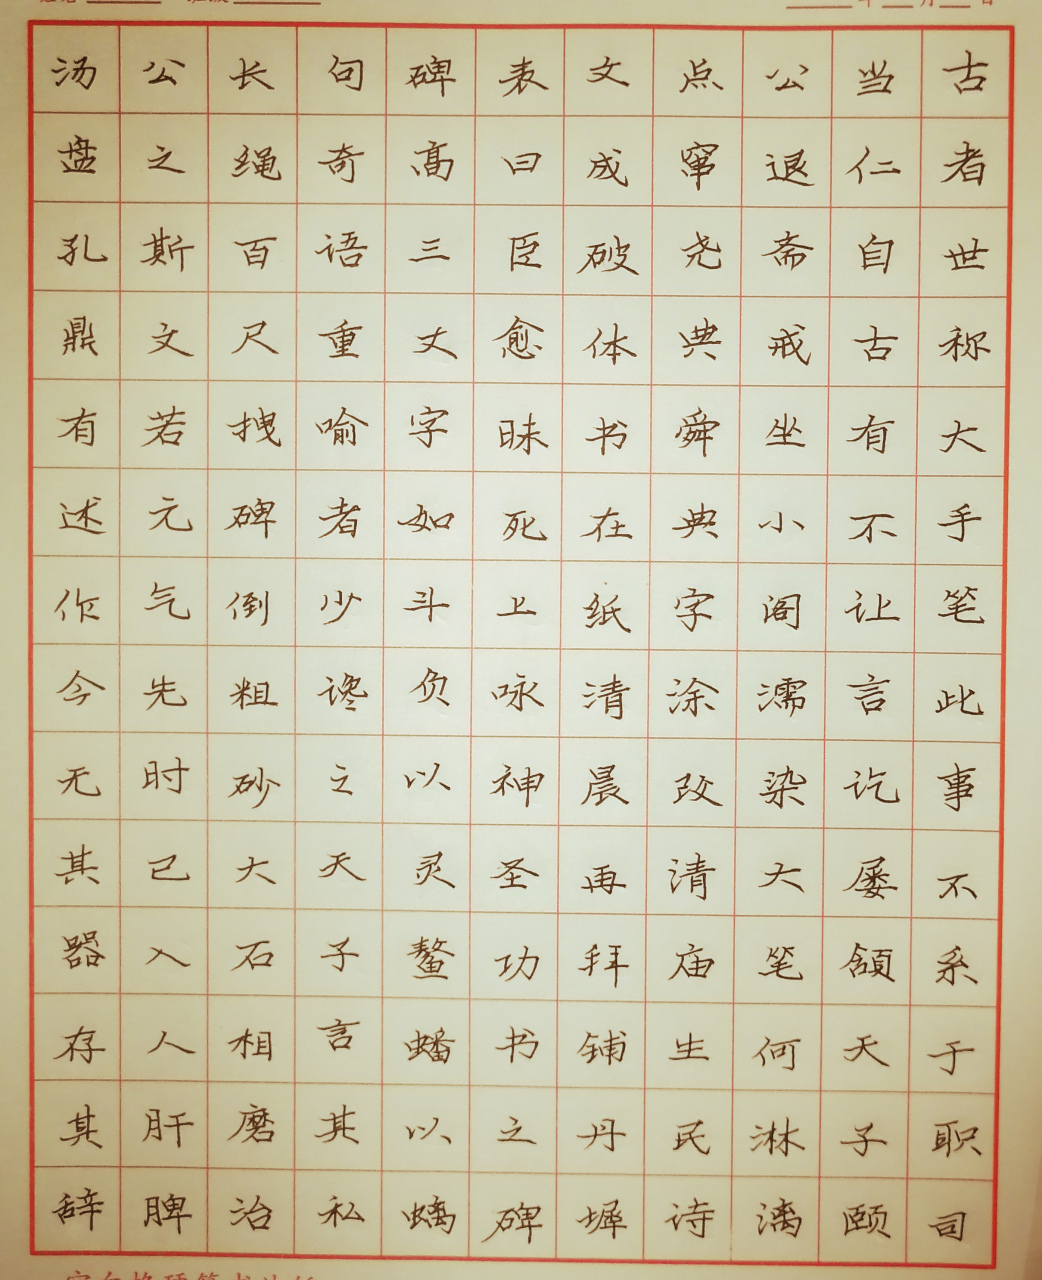 古者世称大手笔此事不系于职司
当仁自古有不让言讫屡颔天子颐
公退斋戒坐小阁濡染大笔何淋漓
点窜尧典舜典字涂改清庙生民诗
文成破体书在纸清晨再拜铺丹墀
表曰臣愈昧死上咏神圣功书之碑
碑高三丈字如斗负以灵鳌蟠以螭
句奇语重喻者少谗之天子言其私
长绳百尺拽碑倒粗砂大石相磨治
公之斯文若元气先时已入人肝脾
汤盘孔鼎有述作今无其器存其辞